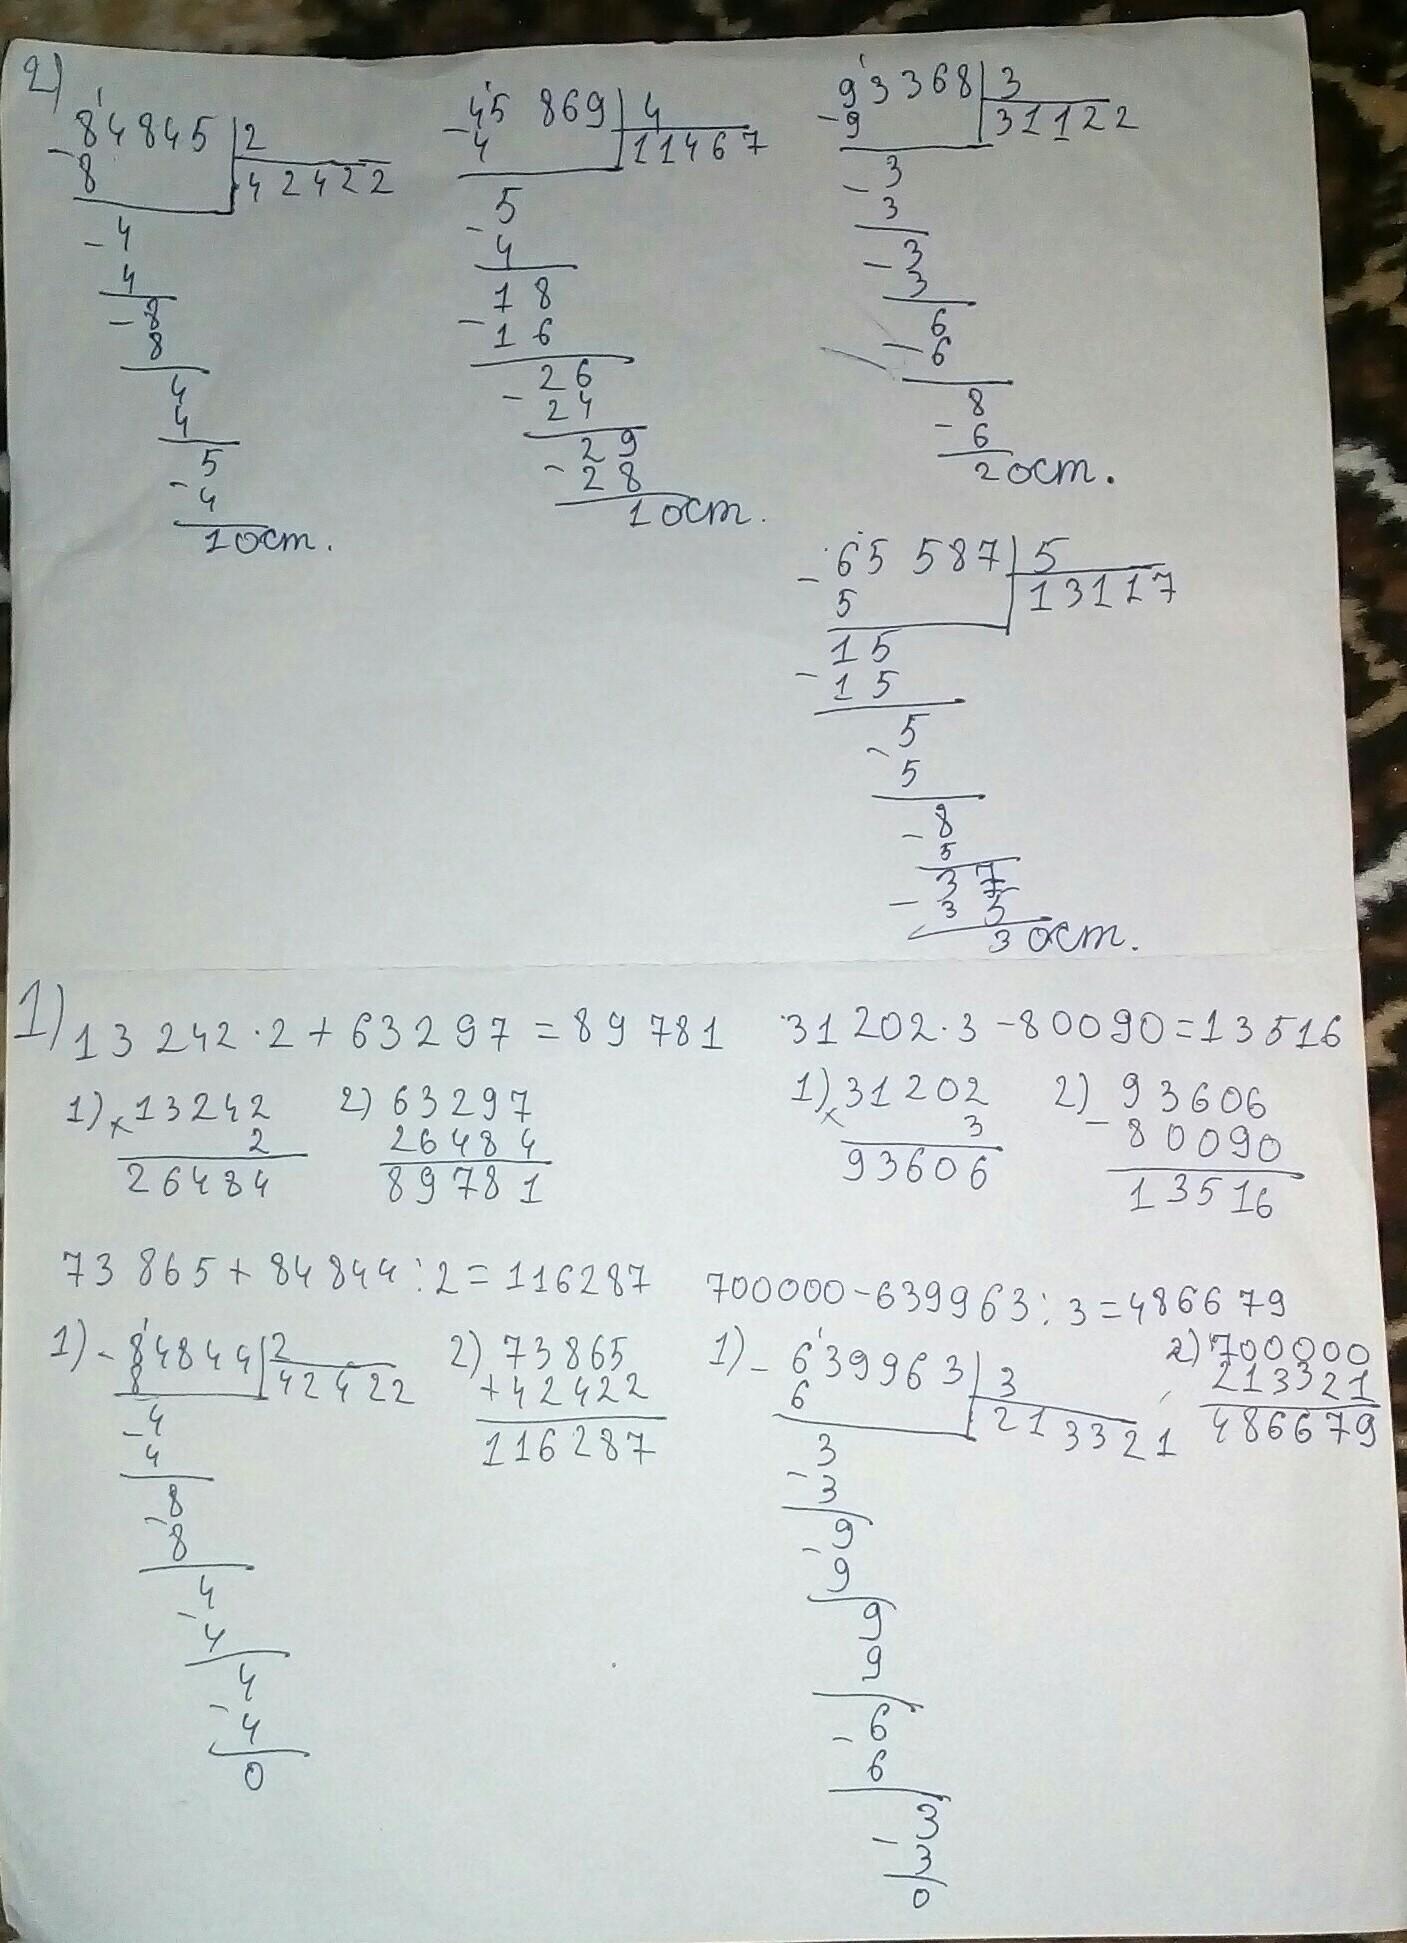 2)
84845 | 2
- 8
42422
- 4
4
- 8
8
4
4
5
- 4
1 ост.
45 869 | 4
- 4
11467
5
- 4
18
- 16
26
- 24
29
- 28
1 ост.
93368 | 3
- 9
31122
3
- 3
- 3
3
6
- 6
8
- 6
2 ост.
65 587 | 5
- 5
13117
15
- 15
5
- 5
- 8
5
37
- 35
3 ост.
1) 13 242 · 2 + 63297 = 89 781
31 202 · 3 - 80090 = 13516
1) × 13242
2
26484
2) 63297
26484
89781
1) × 31202
3
93606
2) 93606
- 80090
13516
73 865 + 84844 : 2 = 116287
700000 - 639963 : 3 = 486679
1) - 84844 | 2
8
42422
- 4
4
- 8
8
4
- 4
4
- 4
0
2) 73865
+ 42422
116287
1) - 639963 | 3
6
213321
3
- 3
9
- 9
9
9
- 6
6
3
- 3
0
2) 700000
213321
486679